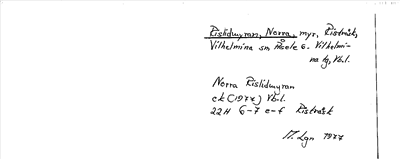 Rislidmyran, Norra, myr, Risträsk,
Vilhelmina sn Åsele G. Vilhelmi-
na tg, Vb.l.
Norra Rislidmyran
ek (1977) Vb.l.
22H 6-7 e-f Risträsk
M. Lgn 1977